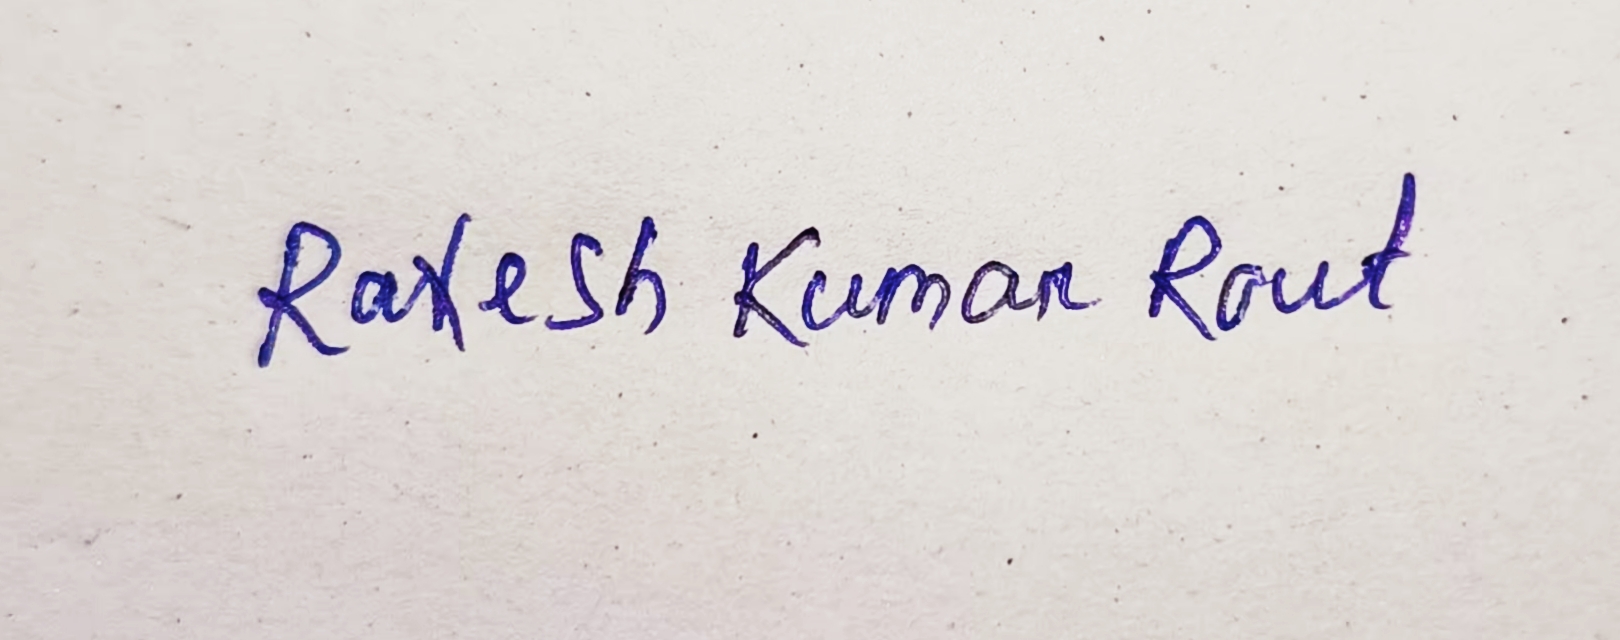 Rakesh Kumar Rout